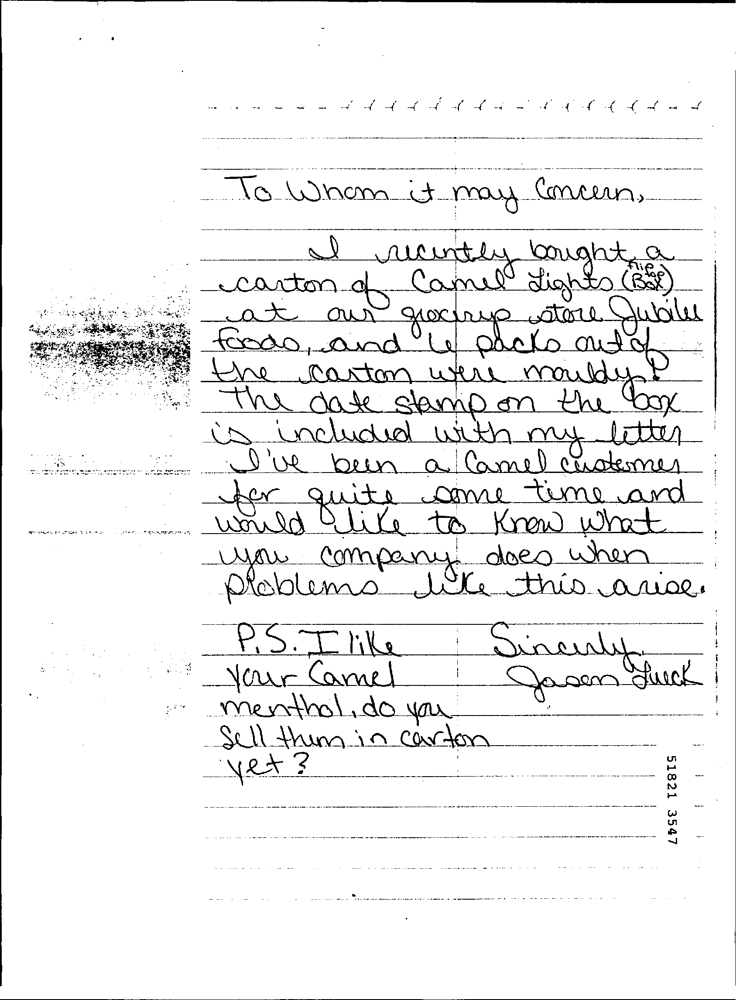 To Whom it may Concern,
I recently bought a
carton of Camel Lights (flip top Box)
at our grociryp store Jubilee
foods, and 6 packs out of
the carton were mouldy!
The date stamp on the box
is included with my letter
I've been a Camel customer
for quite some time and
would like to know what
you company does when
problems like this arise.
P.S. I like
your Camel
menthol, do you
sell them in carton
yet?
Sincerly,
Jason
51821 3547